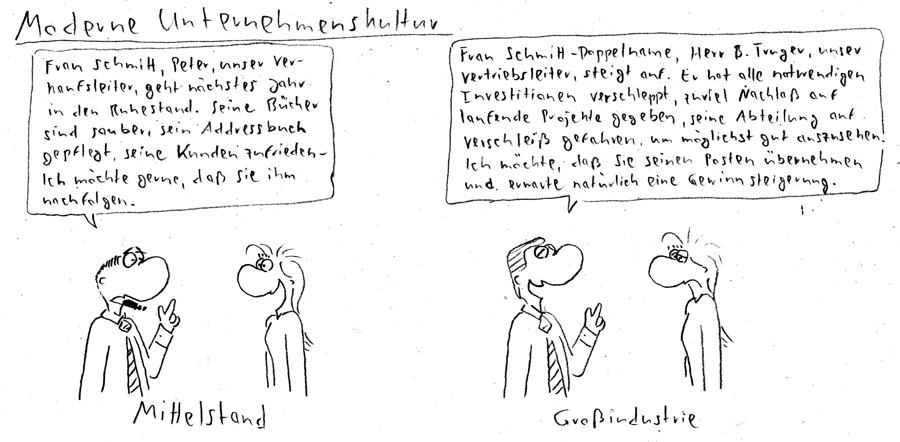 Moderne Unternehmenskultur
Frau Schmitt, Peter, unser Ver-
kaufsleiter, geht nächstes Jahr
in den Ruhestand. Seine Bücher
sind sauber, sein Addressbuch
gepflegt, seine Kunden zufrieden-
Ich möchte gerne, daß Sie ihm
nachfolgen.
Frau Schmitt-Doppelname, Herr B. Truger, unser
Vertriebsleiter, steigt auf. Er hat alle notwendigen
Investitionen verschleppt, zuviel Nachlaß auf
laufende Projekte gegeben, seine Abteilung auf
Verschleiß gefahren, um möglichst gut auszusehen.
Ich möchte, daß Sie seinen Posten übernehmen
und erwarte natürlich eine Gewinnsteigerung.
Mittelstand
Großindustrie